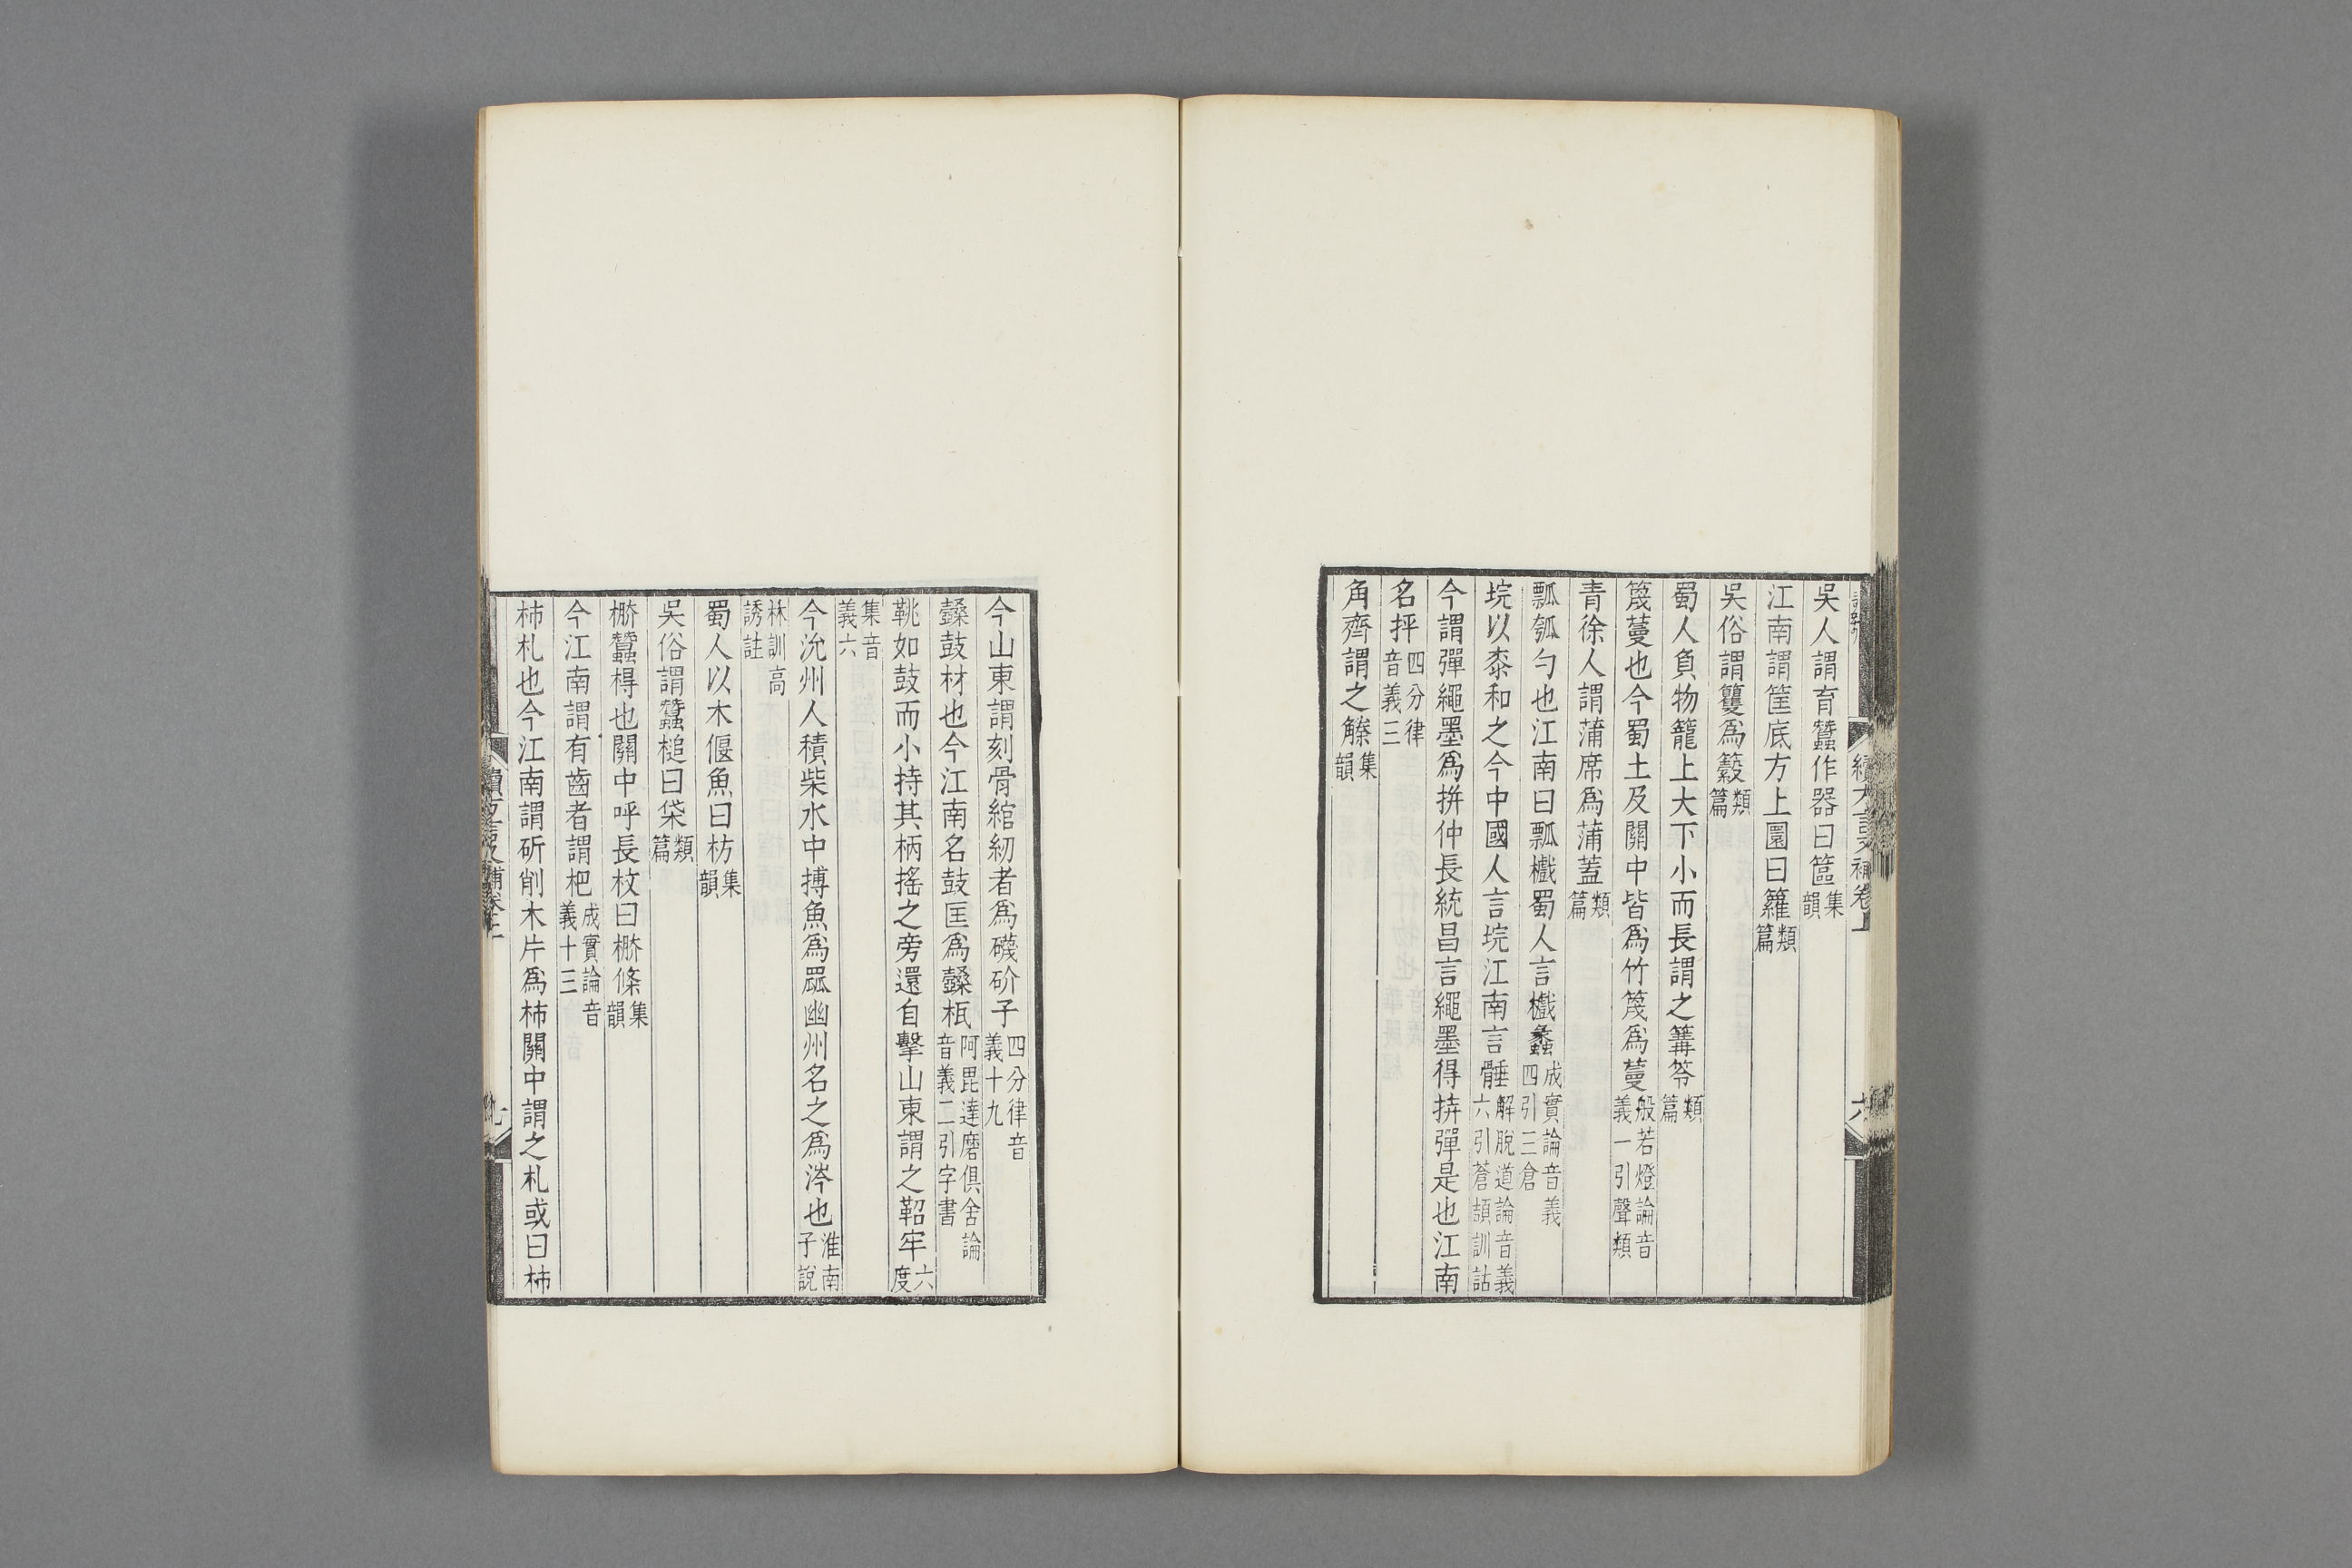 吳人謂育蠶作器曰䈅集韻
江南謂筐底方上圜曰籮類篇
吳俗謂籰爲䉤類篇
蜀人負物籠上大下小而長謂之篝笭類篇
篾蔓也今蜀土及關中皆爲竹篾爲蔓般若燈論音義一引聲類
青徐人謂蒲席爲蒲蓋類篇
瓢瓠勺也江南曰瓢㰕蜀人言㰕蠡成實論音義四引三倉
垸以桼和之今中國人言垸江南言䯔解脫道論音義六引蒼頡訓詁
今謂彈繩墨爲拼仲長統昌言繩墨得拼彈是也江南
名抨四分律音義三
角齊謂之䲍集韻
續方言又補卷上
六
今山東謂刻骨綰紉者爲䃰砎子四分律音義十九
鼞鼓材也今江南名鼓匡爲鼞柧阿毘達磨俱舍論音義二引字書
鞉如鼓而小持其柄搖之旁還自擊山東謂之鞀牢六度
集音義六
今沇州人積柴水中搏魚爲罧幽州名之爲涔也淮南子說
林訓高誘註
蜀人以木偃魚曰枋集韻
吳俗謂蠶槌曰帒類篇
栚蠶㭙也關中呼長枚曰栚條集韻
今江南謂有齒者謂杷成實論音義十三
柿札也今江南謂斫削木片爲柿關中謂之札或曰柿
續方言又補卷上
七